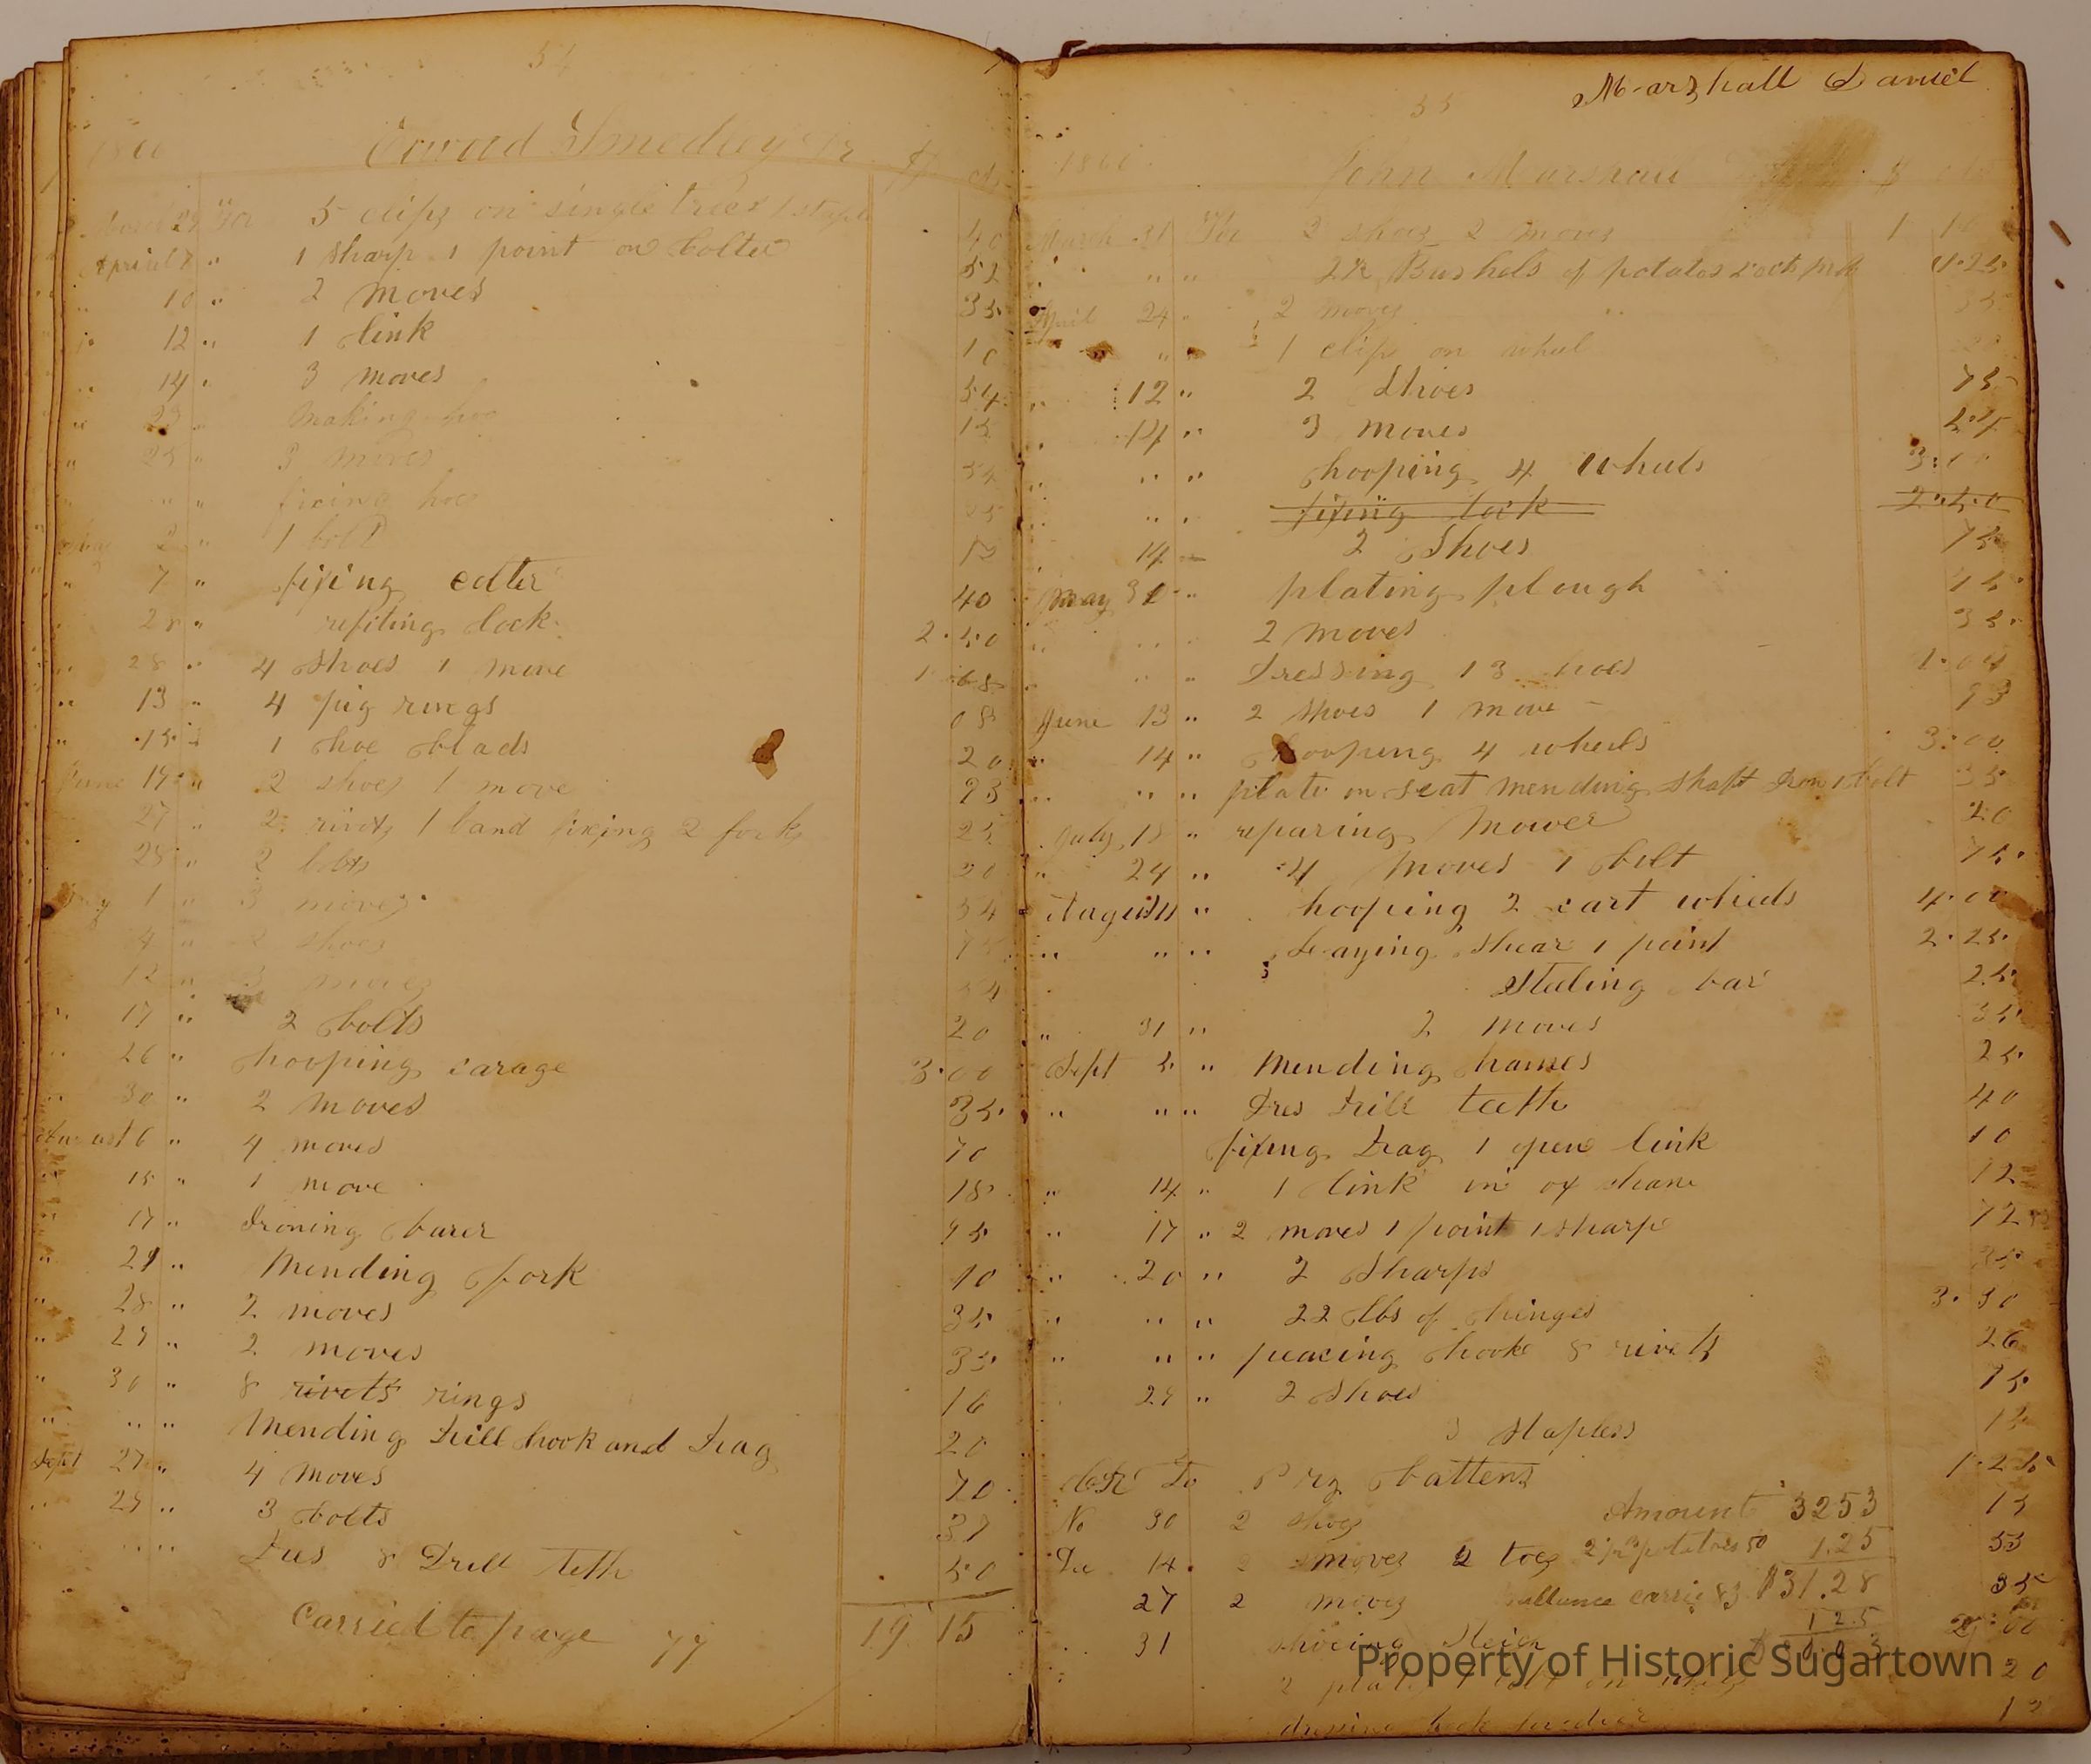 54
1860 Edward Smedley Jr $ cts
March 29 To 5 clips on single trees 1 staple 40
Apriel 7 " 1 sharp 1 point on Colter 52
" 10 " 2 moves 35
" 12 " 1 link 10
" 14 " 3 moves 54
" 23 " making hoe 15
" 25 " 3 moves 54
" " " fixing hoe 25
May 2 " 1 bolt 12
" 7 " fixing colter 40
" 28 " refiting lock 2.50
" 28 " 4 Shoes 1 move 1 68
" 13 " 4 pig rings 08
" 15 " 1 hoe blads 20
June 19 " 2 shoes 1 move 93
27 " 2 rivets 1 band fixing 2 forks 25
28 " 2 bolts 20
1 " 3 moves 54
4 " 2 shoes 75
12 " 3 moves 54
" 17 " 2 bolts 20
" 26 " hooping carage 3.00
" 30 " 2 moves 35
August 6 " 4 moves 70
" 15 " 1 move 18
" 17 " Ironing 95
" 29 " Mending fork 10
" 28 " 2 moves 35
" 29 " 2 moves 35
" 30 " 8 rivets rings 16
" " " Mending drill hook and drag 20
Sept 27 " 4 moves 70
" 29 " 3 bolts 37
" " Dres 8 Drill teth 50
Carried to page 77 19 15
Marshall Daniel
55
1860 John Marshall $ cts
March 31 To 2 shoes 2 moves 1 10
" " " 2½ Bushels of potatos 1.25
April 24 " 2 moves 35
" " " 1 clip on wheel
" 12 " 2 Shoes 75
" 14 " 3 moves 54
" " " hooping 4 wheels 3.00
" " " fixing lock 2.50
" 14 " 2 Shoes 75
May 31 " plating plough 75
" " " 2 moves 35
" " " Dressing 13 hoes 1.04
June 13 " 2 shoes 1 move 93
" 14 " hooping 4 wheels 3.00
" " " plate on seat mending shaft Iron 1 bolt 35
July 18 " reparing Mower 20
" 24 " 4 moves 1 bolt 75
August 11 " hooping 2 cart wheels 4.00
" " " Leaying shear 1 point 2.25
Steeling bar 25
" 31 " 2 moves 35
Sept 5 " Mending hames 25
" " " Dres Drill teeth 40
fixing Drag 1 open link 10
" 14 " 1 link in ox chane 12
" 17 " 2 moves 1 point 1 sharp 72
" " 20 " 2 Sharps 35
" " " 22 lbs of hinges 3.30
" " " peacing hook 8 rivets 26
29 " 2 Shoes 75
3 staples 12
Oct To battens 1.25
No 30 2 shoes Amount 3253 75
De 14 2 moves 2 toes potatoes 50 1.25 55
27 2 moves Ballance carried $31.28 35
31 shoeing Sleigh 125
2 plates 1 bolt on 20
dressing
Property of Historic Sugartown